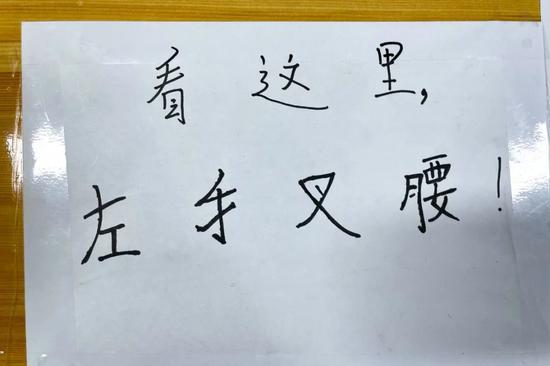 看这里,
左手叉腰!